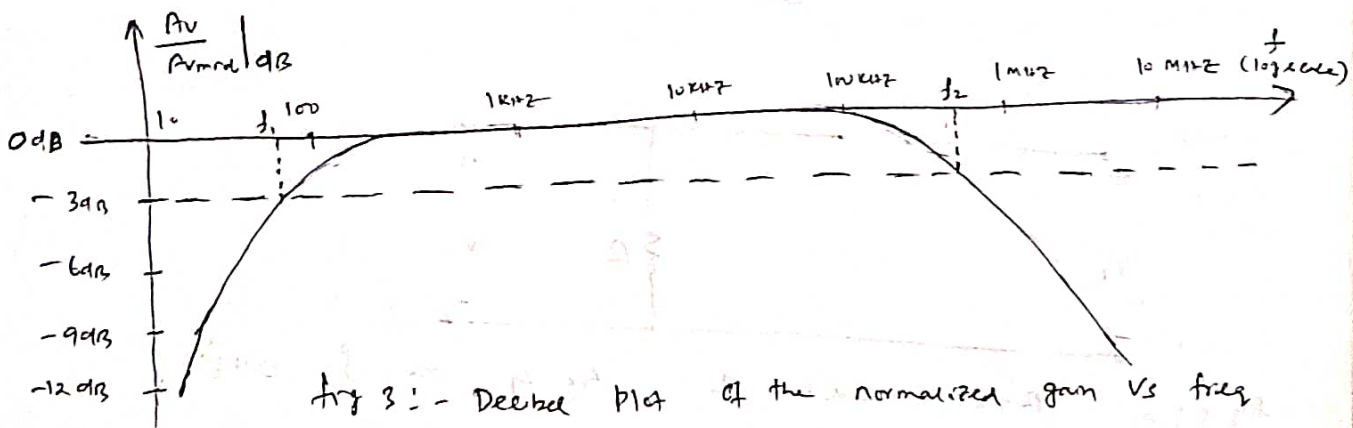 Av
Avmid | dB
10 f1 100 1KHZ 10KHZ 100KHZ f2 1MHZ 10 MHZ f (logscale)
0dB
-3dB
-6dB
-9dB
-12dB
fig 3 :- Decibel Plot of the normalized gain Vs freq